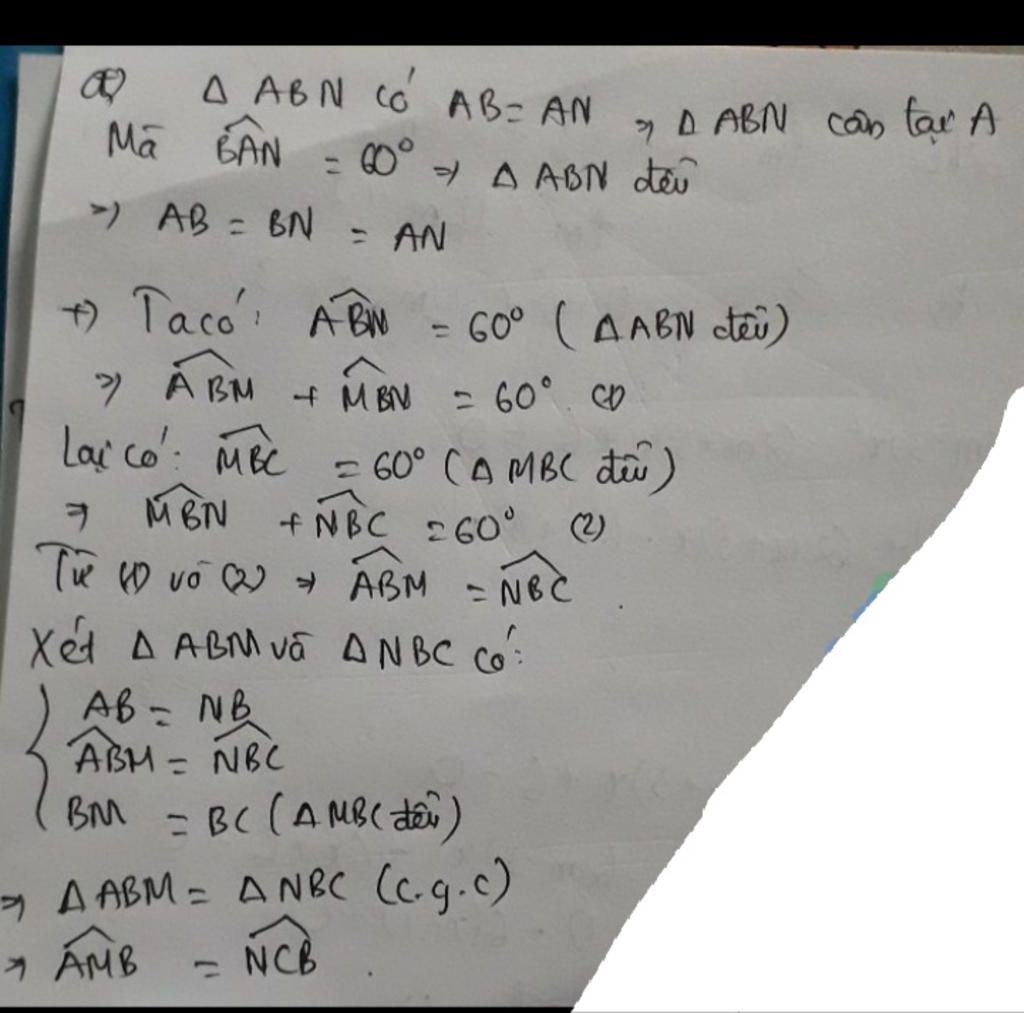 a) Δ ABN có AB = AN ⇒ Δ ABN cân tại A
Mà BAN̂ = 60° ⇒ Δ ABN đều
⇒ AB = BN = AN
+) Ta có: ABN̂ = 60° (Δ ABN đều)
⇒ ABM̂ + MBN̂ = 60° (1)
Lại có: MBĈ = 60° (Δ MBC đều)
⇒ MBN̂ + NBĈ = 60° (2)
Từ (1) và (2) ⇒ ABM̂ = NBĈ.
Xét Δ ABM và Δ NBC có:
AB = NB
ABM̂ = NBĈ
BM = BC (Δ MBC đều)
⇒ Δ ABM = Δ NBC (c.g.c)
⇒ AMB̂ = NCB̂.